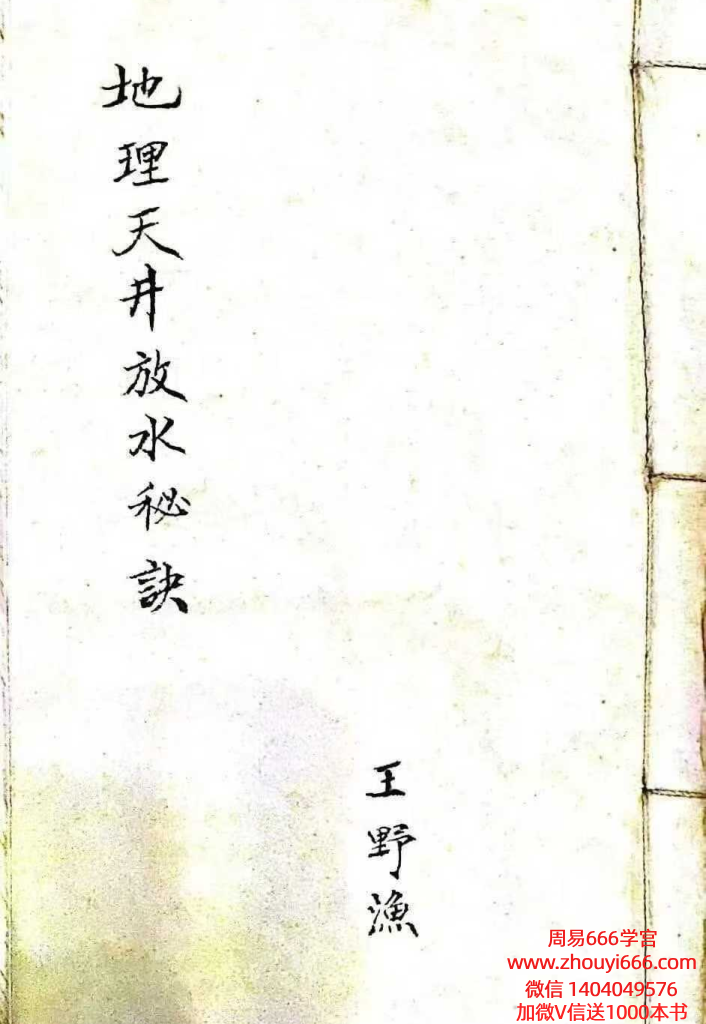 地理天井放水秘訣
王野漁
周易666学宫
www.zhouyi666.com
微信 1404049576
加微V信送1000本书